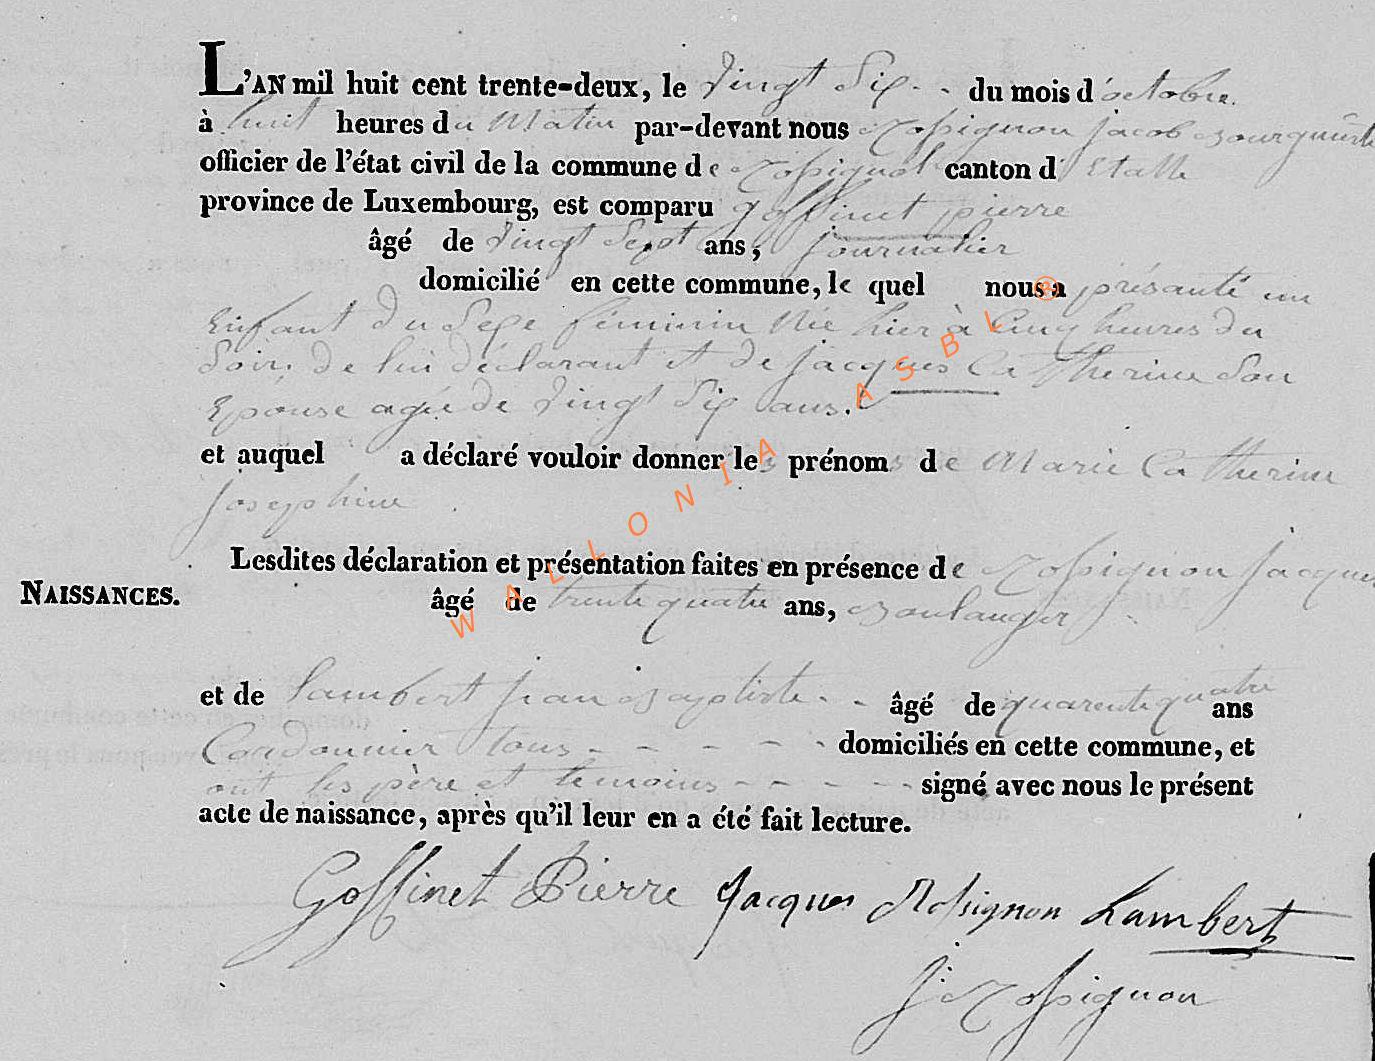 L'AN mil huit cent trente-deux, le vingt Six - - du mois d'octobre.
à huit heures du Matin par-devant nous Rossignon jacob Bourgumestre
officier de l'état civil de la commune de Rossignol canton d'Etalle
province de Luxembourg, est comparu goffinet pierre
âgé de vingt Sept ans, journalier
domicilié en cette commune, le quel nous a présanté un
Enfant du Sexe féminin Née hier à Cinq heures du
Soir, de lui déclarant et de jacques Catherine Son
Epouse agée de vingt Six ans.
et auquel a déclaré vouloir donner les prénoms de Marie Catherine
josephine.
Lesdites déclaration et présentation faites en présence de Rossignon jacques
NAISSANCES.
âgé de trente quatre ans, Boulanger
et de lambert jean Baptiste - - âgé de quarente quatre ans
Cordonnier tous - - - - - - domiciliés en cette commune, et
ont les père et temoins - - - - - signé avec nous le présent
acte de naissance, après qu'il leur en a été fait lecture.
Goffinet Pierre Jacques Rossignon Lambert
J: Rossignon
WALLONIA ASBL ®